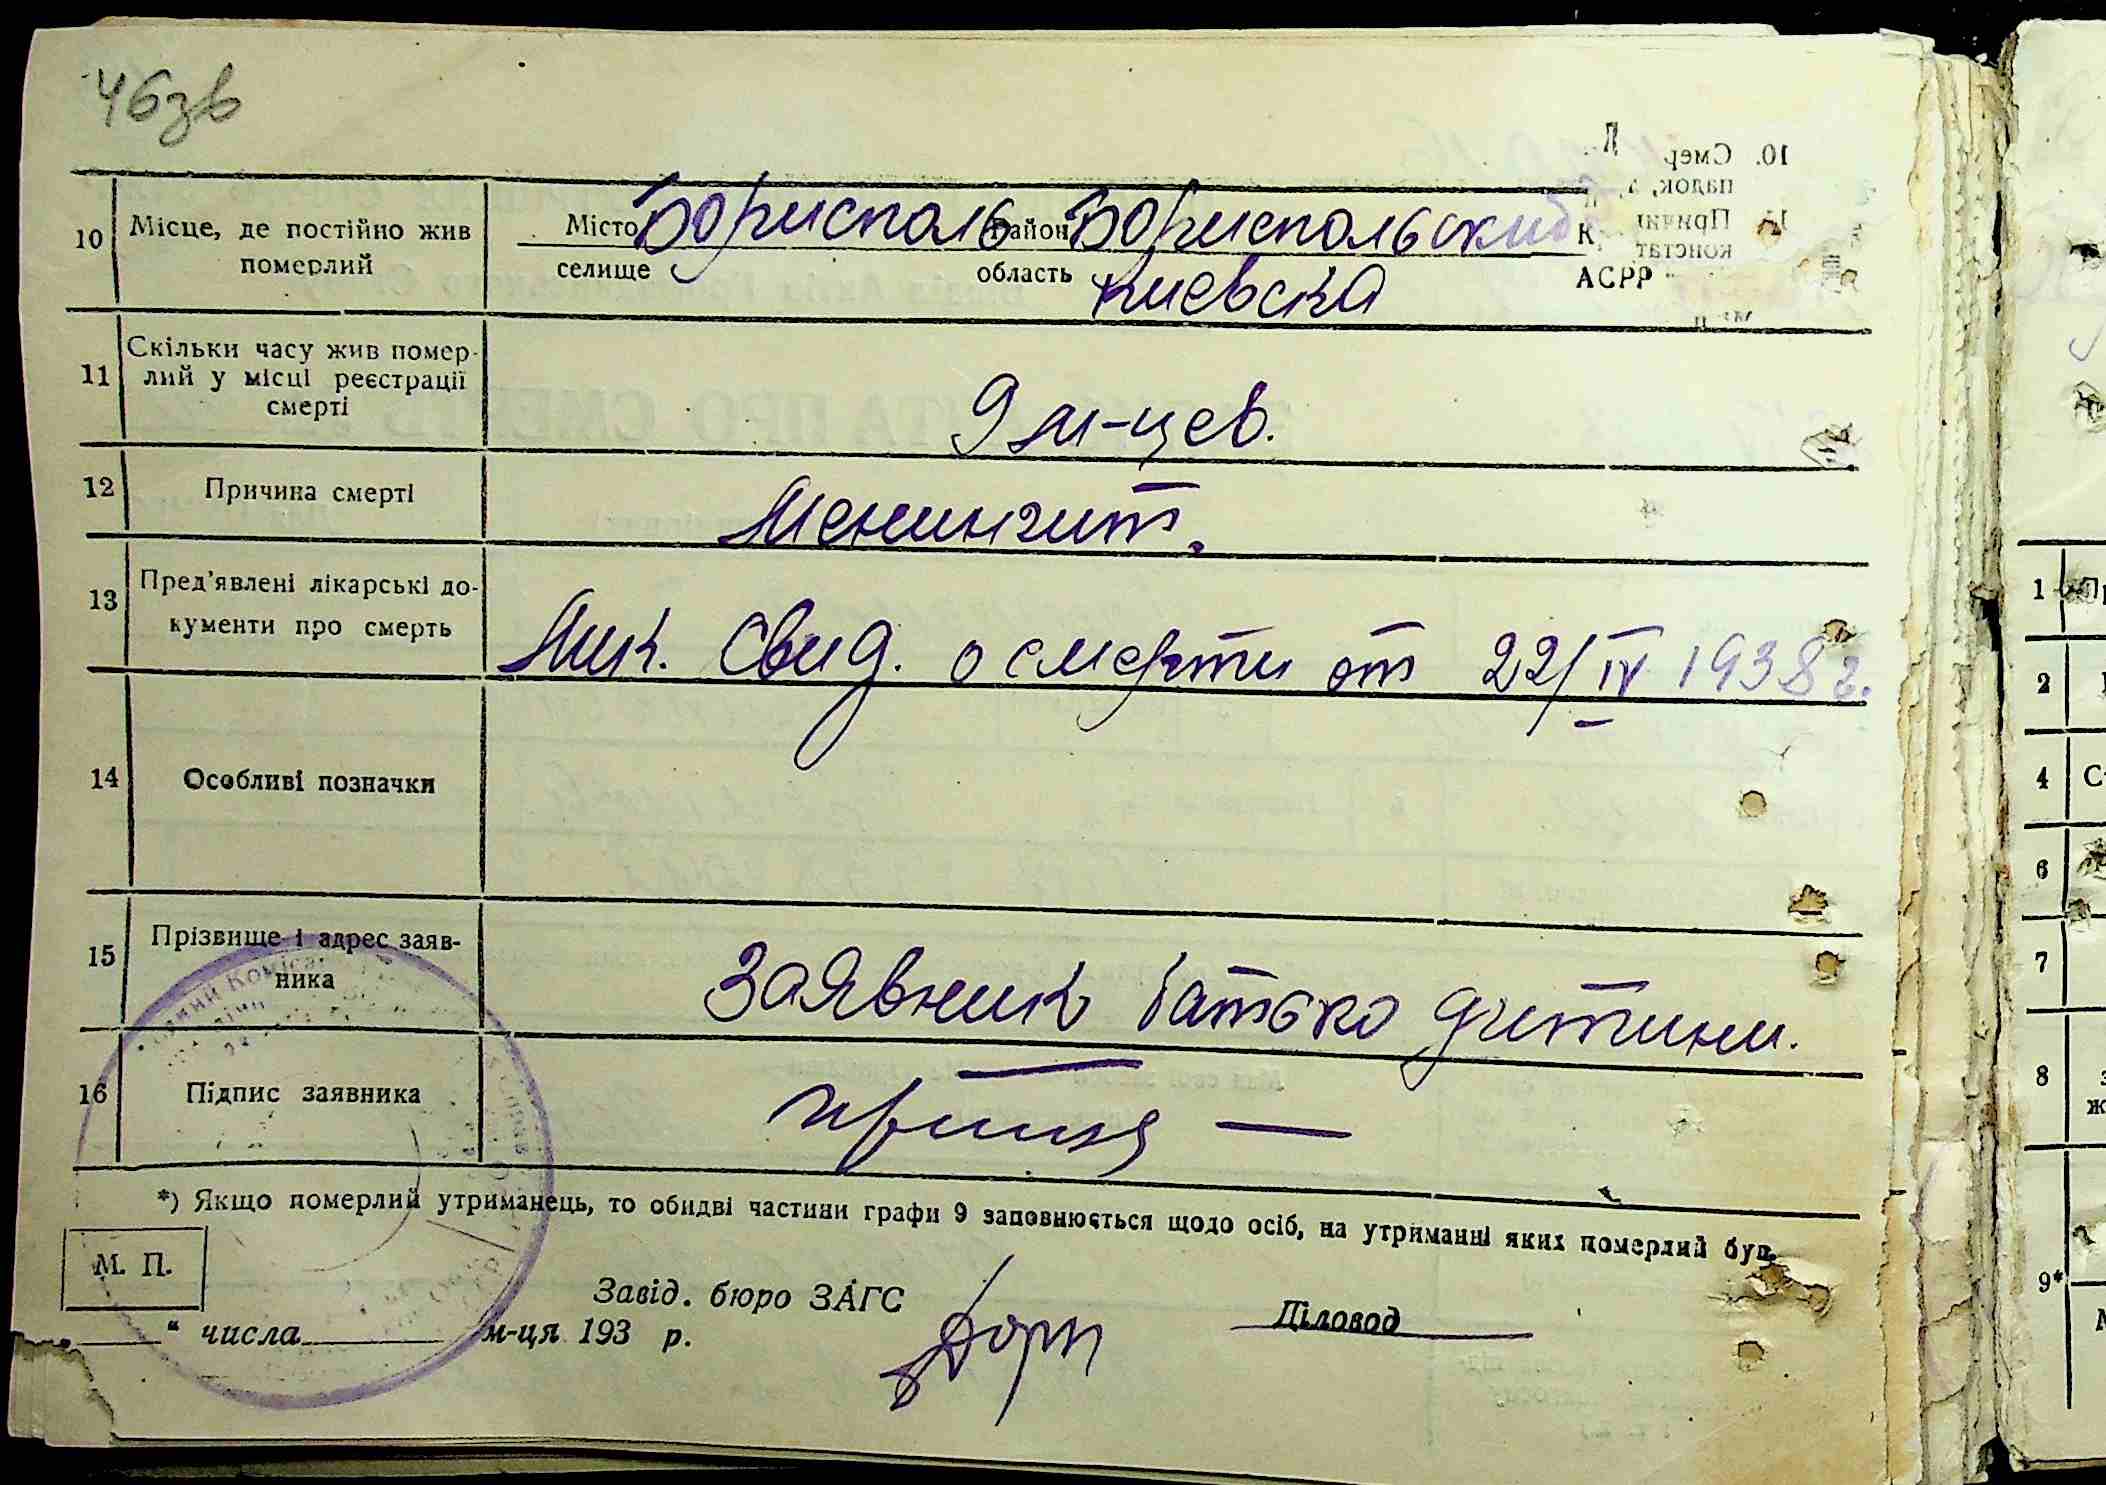 46зв
10 Місце, де постійно жив померлий
Місто Бориспіль район Бориспольский
селище область Киевска АСРР
11 Скільки часу жив помер-
лий у місці реєстрації
смерті
9 м-цев.
12 Причина смерті Менингит.
13 Пред'явлені лікарські до-
кументи про смерть
Лик. Свид. о смерти от 22/IV 1938 г.
14 Особливі позначки
15 Прізвище і адрес заяв-
ника
Заявник батько дитини.
16 Підпис заявника
*) Якщо померлий утриманець, то обидві частини графи 9 заповнюється щодо осіб, на утриманні яких померлий був.
М. П.
Завід. бюро ЗАГС
Діловод
" числа м-ця 193 р.
1
2
4
6
7
8
9*